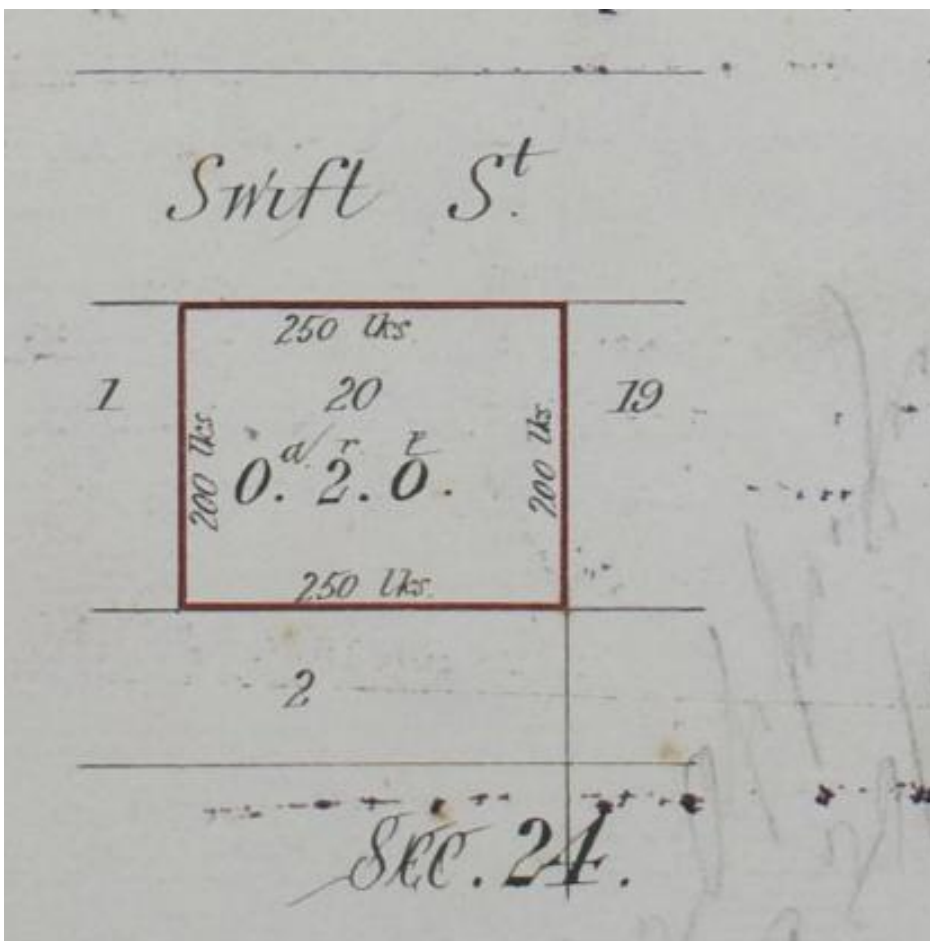 Swift St.
250 lks.
1
20
19
200 lks.
a r p
0. 2. 0.
200 lks.
250 lks.
2
Sec. 24.